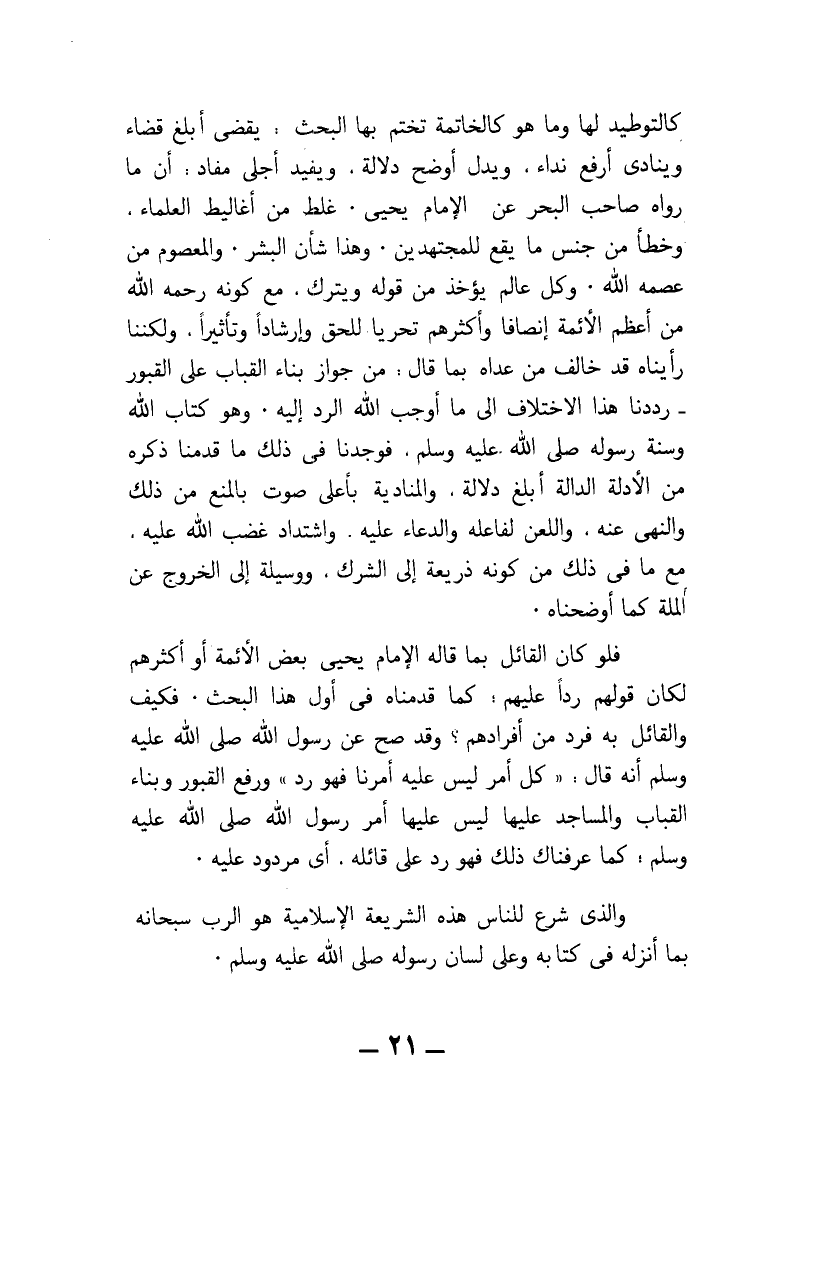 كالتوطيد لها وما هو كالخاتمة تختم بها البحث : يقضى أبلغ قضاء
وينادى أرفع نداء ، ويدل أوضح دلالة ، ويفيد أجلى مفاد : أن ما
رواه صاحب البحر عن الإمام يحيى ٠ غلط من أغاليط العلماء ،
وخطأ من جنس ما يقع للمجتهدين ٠ وهذا شأن البشر ٠ والمعصوم من
عصمه الله ٠ وكل عالم يؤخذ من قوله ويترك ، مع كونه رحمه الله
من أعظم الأئمة إنصافا وأكثرهم تحريا للحق وإرشاداً وتأثيراً ، ولكننا
رأيناه قد خالف من عداه بما قال : من جواز بناء القباب على القبور
ـ رددنا هذا الاختلاف الى ما أوجب الله الرد إليه ٠ وهو كتاب الله
وسنة رسوله صلى الله عليه وسلم ، فوجدنا فى ذلك ما قدمنا ذكره
من الأدلة الدالة أبلغ دلالة ، والمنادية بأعلى صوت بالمنع من ذلك
والنهى عنه ، واللعن لفاعله والدعاء عليه . واشتداد غضب الله عليه ،
مع ما فى ذلك من كونه ذريعة إلى الشرك ، ووسيلة إلى الخروج عن
الملة كما أوضحناه ٠
فلو كان القائل بما قاله الإمام يحيى بعض الأئمة أو أكثرهم
لكان قولهم رداً عليهم ؛ كما قدمناه فى أول هذا البحث ٠ فكيف
والقائل به فرد من أفرادهم ؟ وقد صح عن رسول الله صلى الله عليه
وسلم أنه قال : « كل أمر ليس عليه أمرنا فهو رد » ورفع القبور وبناء
القباب والمساجد عليها ليس عليها أمر رسول الله صلى الله عليه
وسلم ؛ كما عرفناك ذلك فهو رد على قائله ، أى مردود عليه ٠
والذى شرع للناس هذه الشريعة الإسلامية هو الرب سبحانه
بما أنزله فى كتابه وعلى لسان رسوله صلى الله عليه وسلم ٠
— ٢١ —